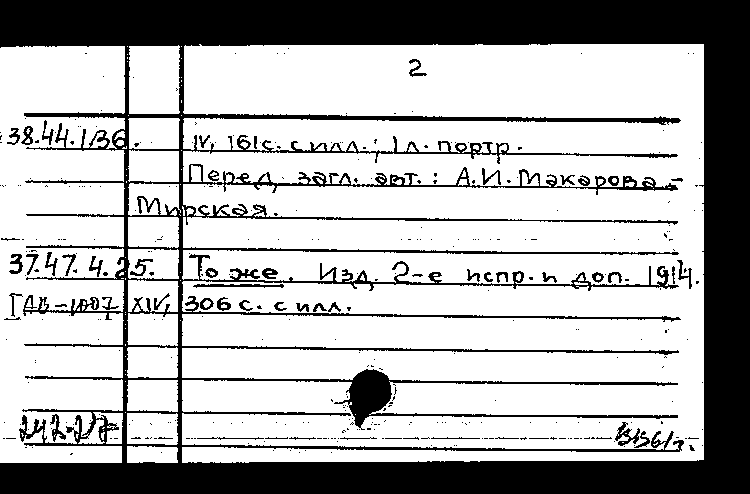 2
38.44.1/36. IV, 161с. с илл.; 1л. портр.
Перед загл. авт.: А.И. Макарова-
Мирская.
37.47.4.25. То же. Изд. 2-е испр. и доп. 1914.
XIV, 306 с. с илл.